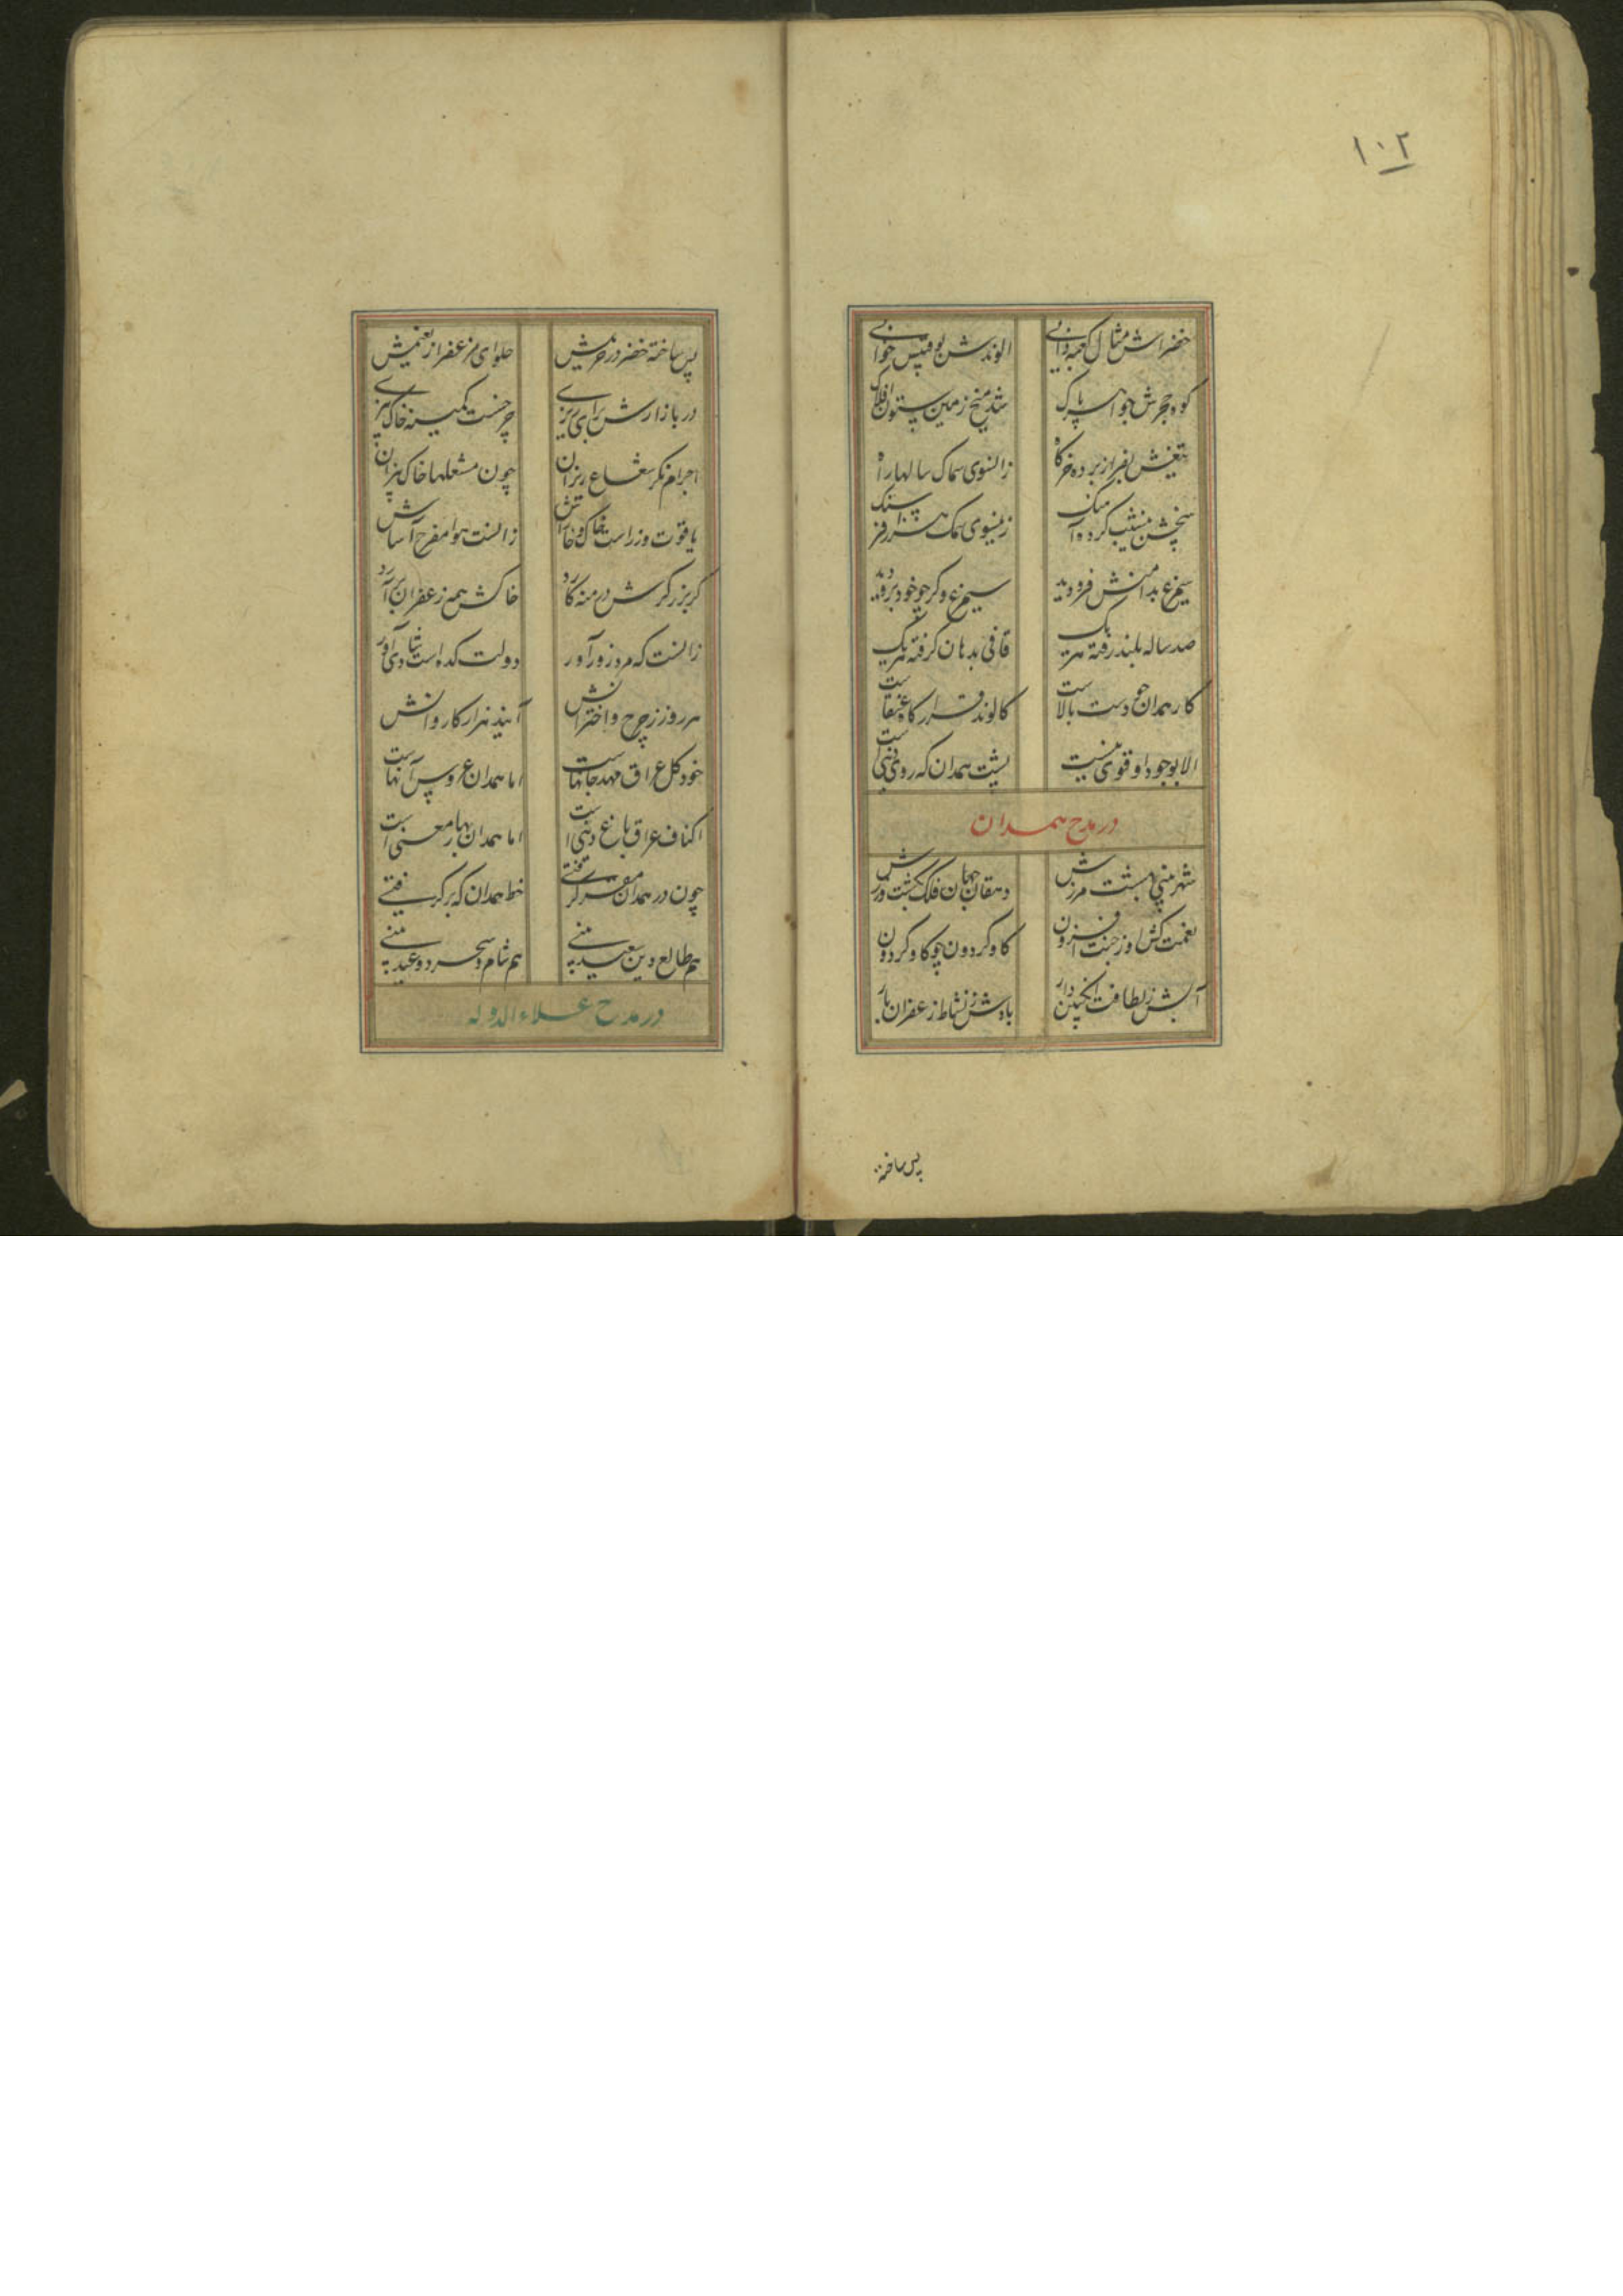 ۱۰۲
خضراش مثال کعبه دانی الوندش بوقبیس خوانی
کوه حجرش جواهر پاک شد میخ زمین ستون افلاک
تیغش بفراز برده خرگاه زانسوی سماک سالها راه
بیخش بنشیب کرده آهنگ زینسوی سمک هزار فرسنگ
سیمرغ بدامنش فرو دید سیمرغ دگر چو خود برو دید
صد ساله بلند رفته هریک قافی بدهان گرفته هریک
کار همدان چو دست بالاست کالوند قرار گاه عنقاست
الا بوجود او قوی نیست پشت همدان که روی دنیی است
در مدح همدان
شهر بینی بهشت مرزش دهقان جهان فلک کشت ورزش
نعمت کش او ز جنت افزون گاو گردون چو گاو گردون
آبش ز لطافت انگبین دار بادش ز نشاط زعفران بار
پس ساخته
پس ساخته خضر در حریمش حلوای مزعفر از نعیمش
در بازارش برای ریزی چرخست کمینه خاک بیزی
اجرام نگر شعاع ریزان چون مشعلها خاک بیزان
یاقوت و زر است خاک و خاراش زانست هوا مفرح آساش
گر برزگرش درمنه کارد خاکش همه زعفران برآرد
زانست که مرد زورآور دولت کده است شادی آور
هر روز ز چرخ و اخترانش آیند هزار کاروانش
خود کل عراق مهد جانهاست اما همدان عروس آنهاست
اکناف عراق باغ دنیی است اما همدان بهار معنی است
چون در همدان مقر گرفتی خط همدان که برگرفتی
هم طالع دین سعید بینی هم شام و سحر دو عید بینی
در مدح علاء الدوله